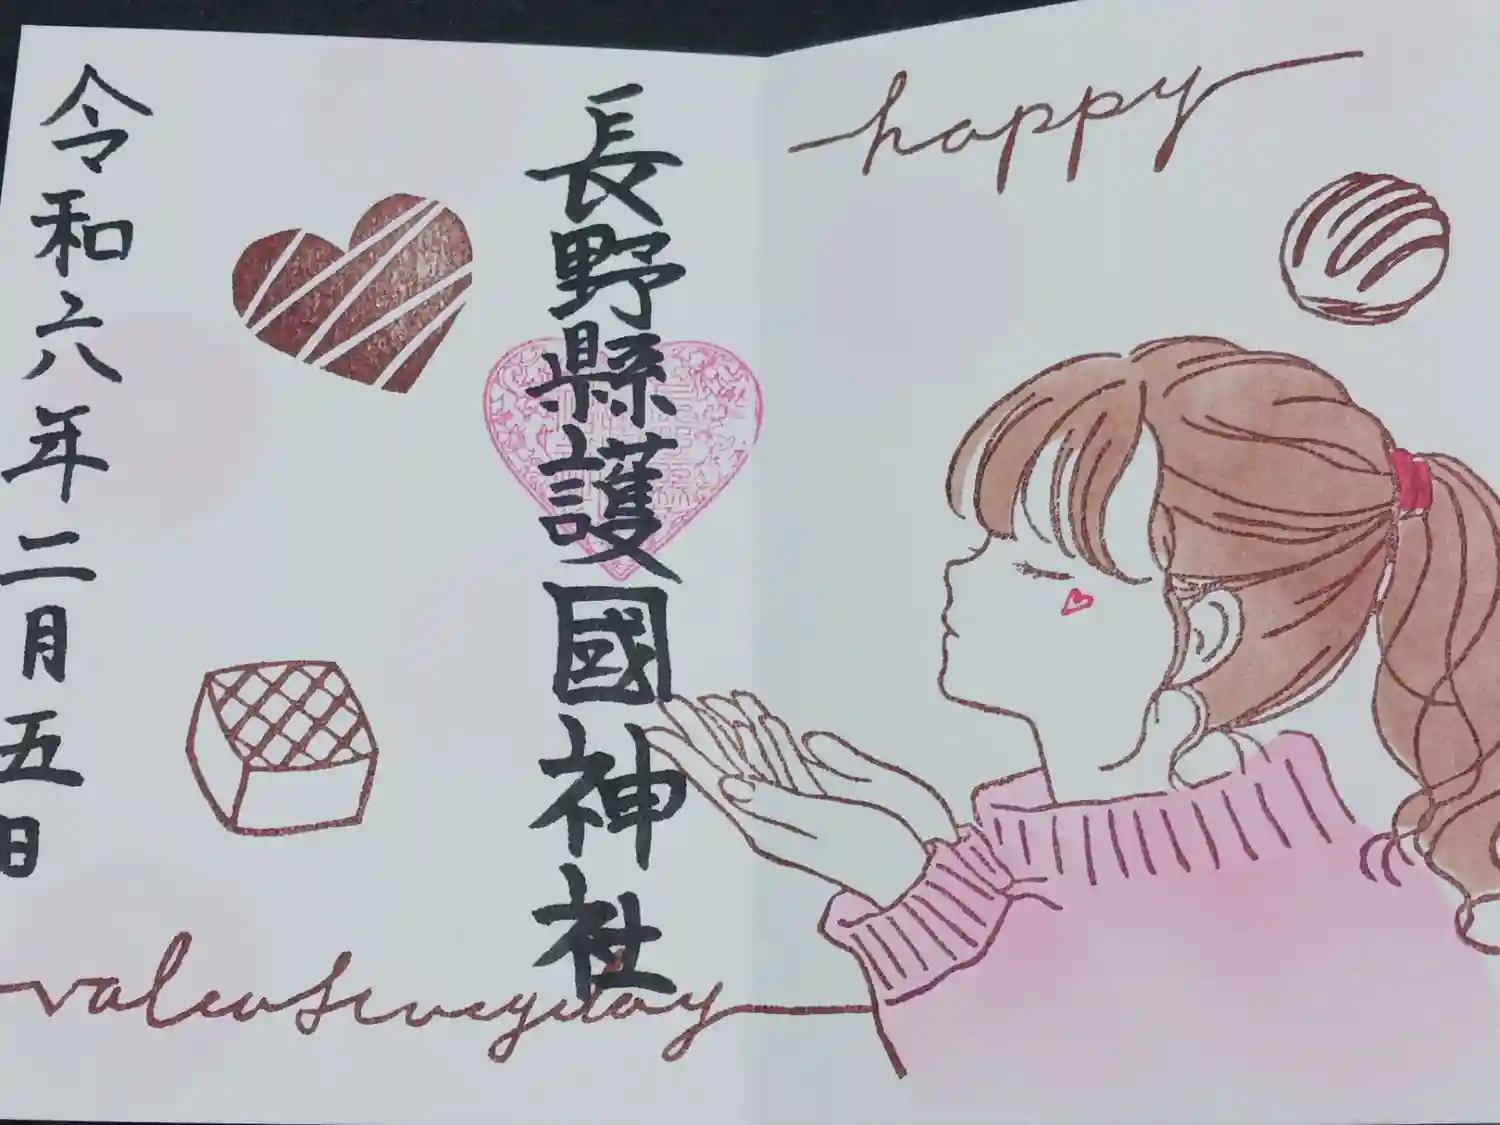 happy
長野縣護國神社
令和六年二月五日
valentine day